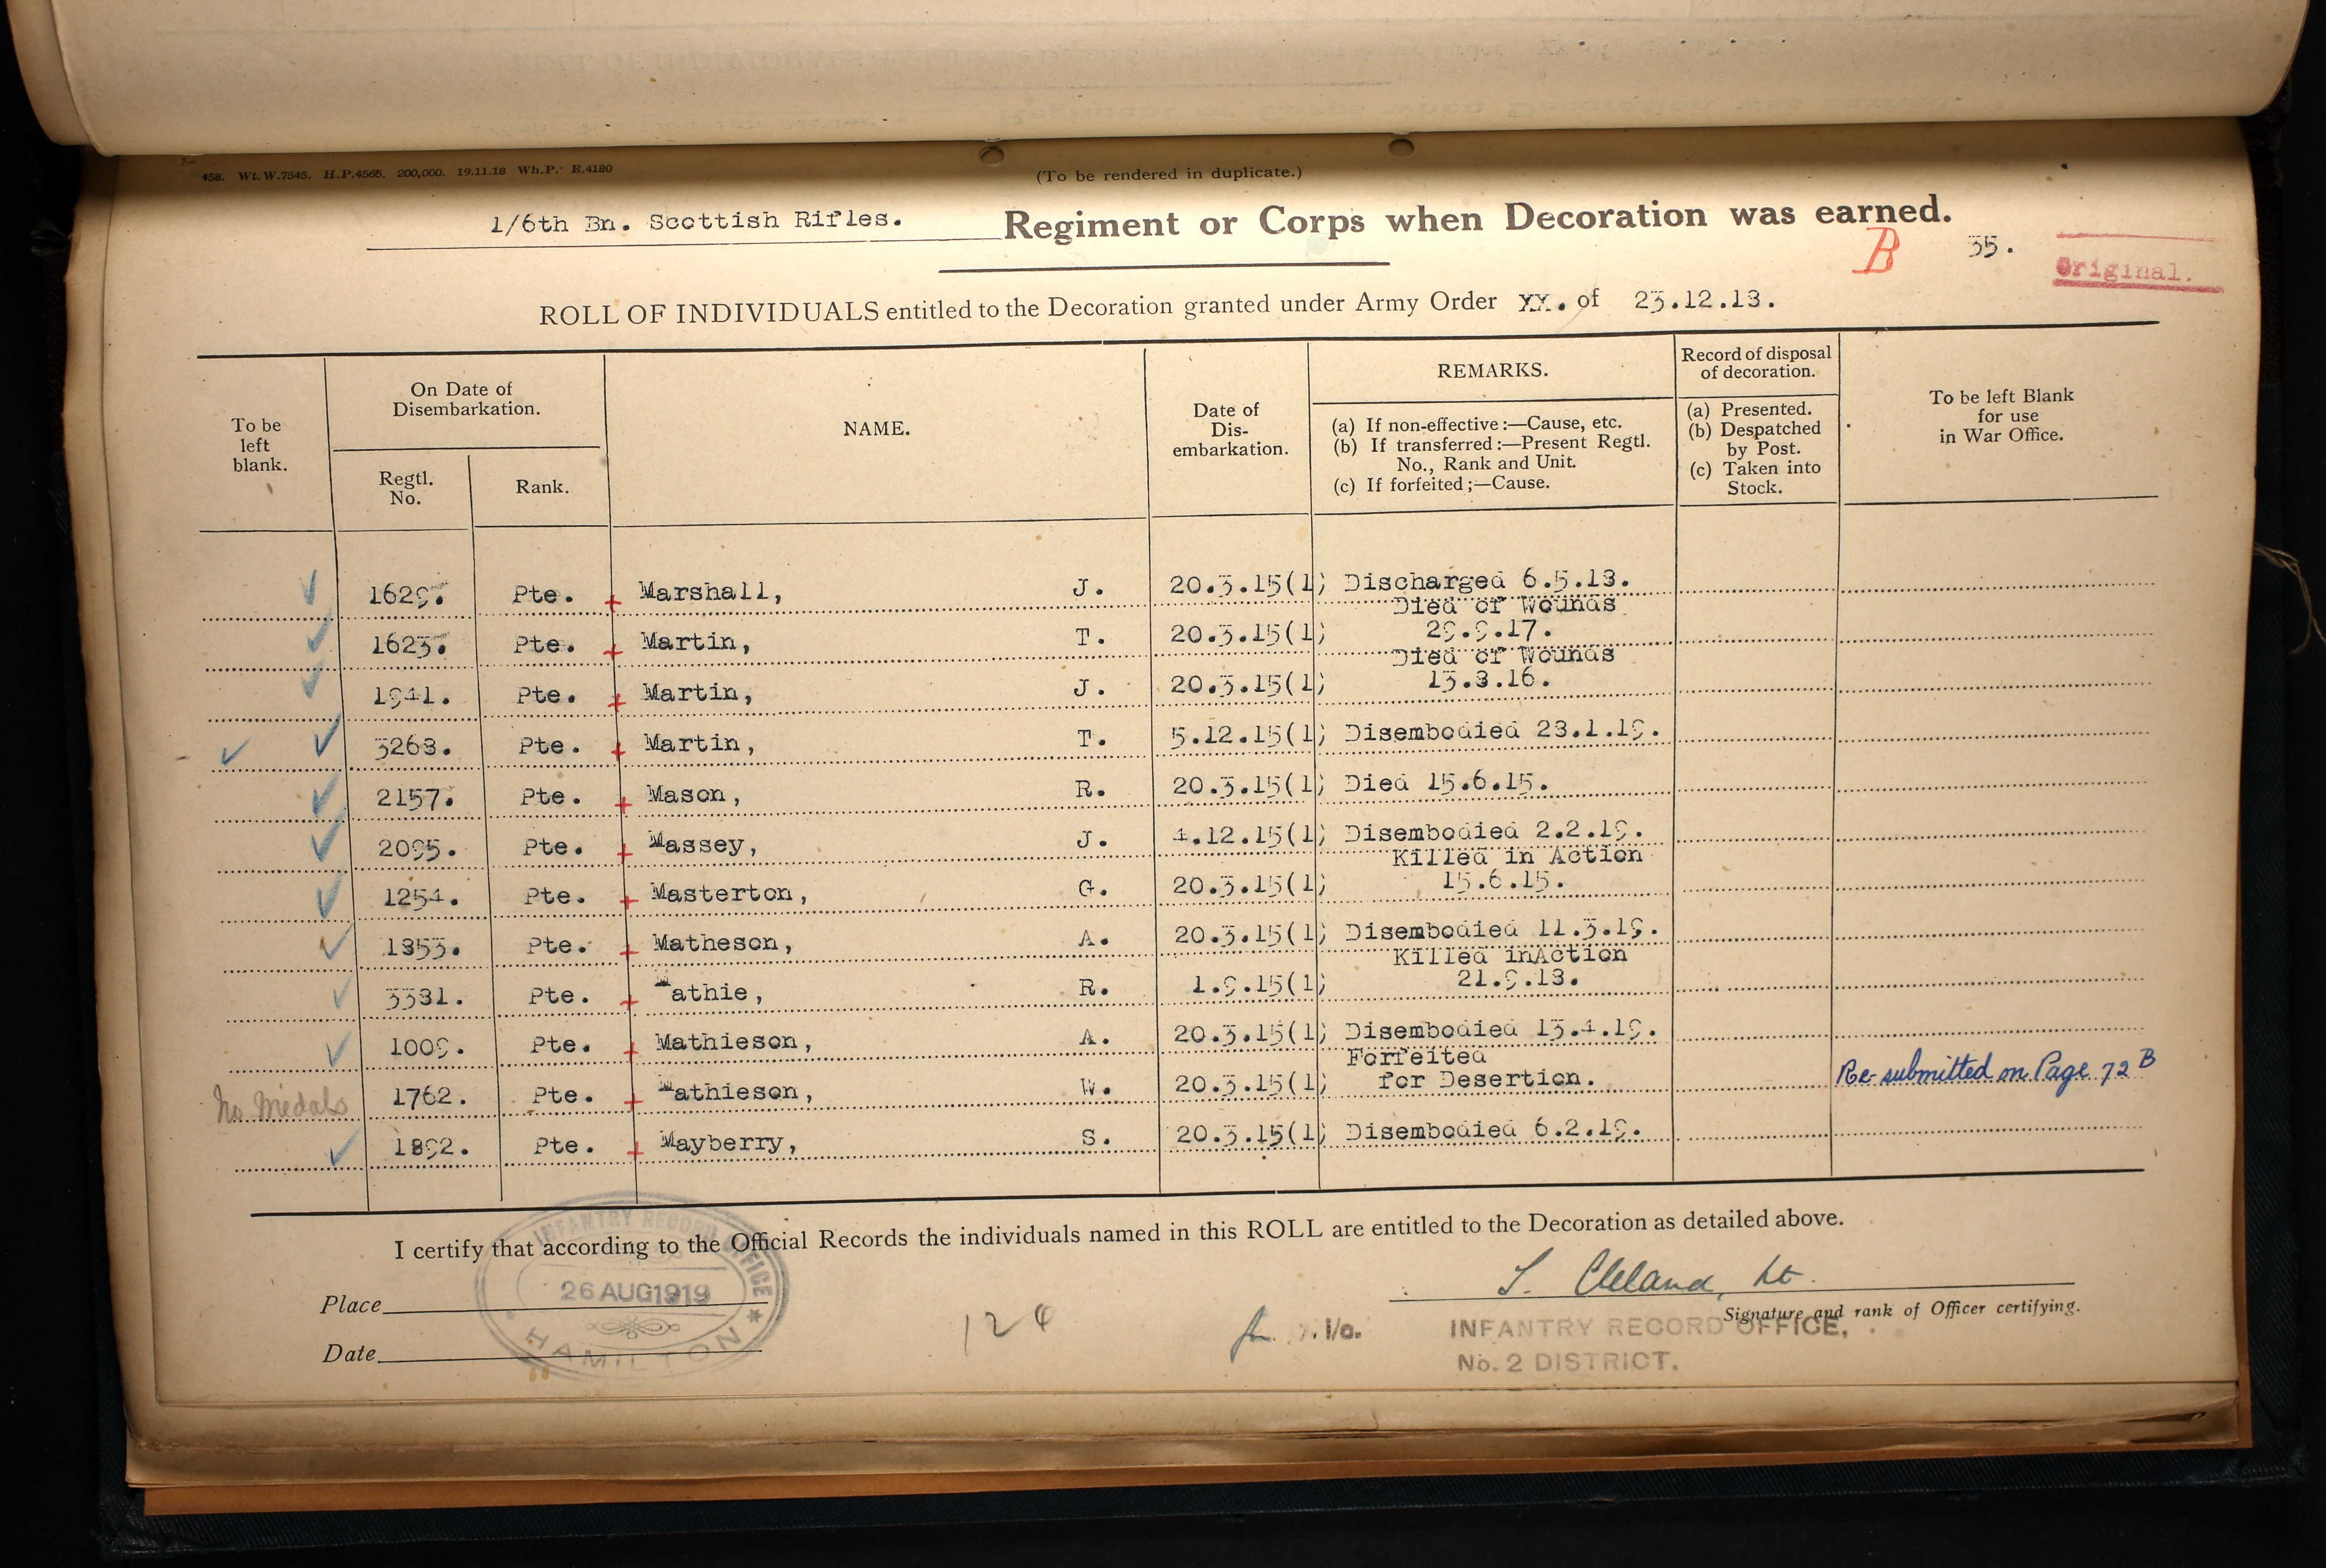 458. Wt.W.7545. H.P.4565. 200,000. 19.11.18 Wh.P. E.4180
(To be rendered in duplicate.)
1/6th Bn. Scottish Rifles. Regiment or Corps when Decoration was earned.
B 35.
Original.
ROLL OF INDIVIDUALS entitled to the Decoration granted under Army Order XX. of 23.12.18.
To be left blank.
On Date of Disembarkation.
Regtl. No.
Rank.
NAME.
Date of Dis-embarkation.
REMARKS.
(a) If non-effective:—Cause, etc.
(b) If transferred:—Present Regtl. No., Rank and Unit.
(c) If forfeited;—Cause.
Record of disposal of decoration.
(a) Presented.
(b) Despatched by Post.
(c) Taken into Stock.
To be left Blank for use in War Office.
1629. Pte. + Marshall, J. 20.3.15(1) Discharged 6.5.18.
1623. Pte. + Martin, T. 20.3.15(1) Died of Wounds 29.9.17.
1941. Pte. + Martin, J. 20.3.15(1) Died of Wounds 13.8.16.
3268. Pte. + Martin, T. 5.12.15(1) Disembodied 28.1.19.
2157. Pte. + Mason, R. 20.3.15(1) Died 15.6.15.
2095. Pte. + Massey, J. 4.12.15(1) Disembodied 2.2.19.
1254. Pte. + Masterton, G. 20.3.15(1) Killed in Action 15.6.15.
1853. Pte. + Matheson, A. 20.3.15(1) Disembodied 11.3.19.
3381. Pte. + Mathie, R. 1.9.15(1) Killed inAction 21.9.18.
1009. Pte. + Mathieson, A. 20.3.15(1) Disembodied 13.4.19.
No Medals 1762. Pte. + Mathieson, W. 20.3.15(1) Forfeited for Desertion. Re-submitted on Page 72 B
1892. Pte. + Mayberry, S. 20.3.15(1) Disembodied 6.2.19.
I certify that according to the Official Records the individuals named in this ROLL are entitled to the Decoration as detailed above.
INFANTRY RECORD OFFICE
26 AUG 1919
HAMILTON
Place
Date
124
S. Cleland, Lt.
Signature and rank of Officer certifying.
for i/c.
INFANTRY RECORD OFFICE,
No. 2 DISTRICT.